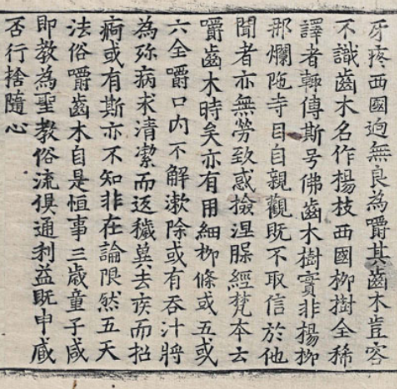 牙疼西國迥無良為嚼其齒木豈容
不識齒木名作楊枝西國柳樹全稀
譯者輒傳斯号佛齒木樹實非楊柳
那爛陁寺目自親觀既不取信於他
聞者亦無勞致惑撿涅槃經梵本云
嚼齒木時矣亦有用細柳條或五或
六全嚼口内不解漱除或有吞汁將
為殄病求清潔而返穢冀去疾而招
痾或有斯亦不知非在論限然五天
法俗嚼齒木自是恒事三歳童子咸
即教為聖教俗流俱通利益既申臧
否行捨隨心